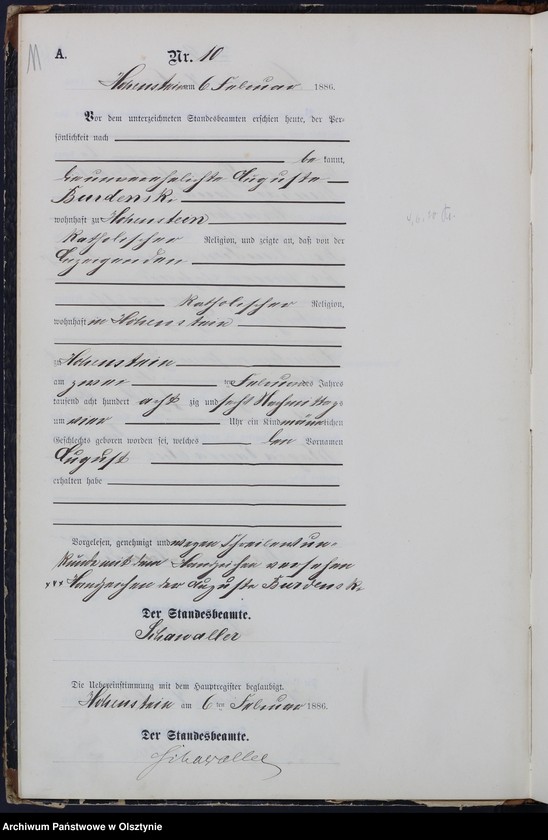 M
A.
Nr. 10
Hohenstein am 6 Februar 1886.
Vor dem unterzeichneten Standesbeamten erschien heute, der Per-
sönlichkeit nach
be kannt,
die unverehelichte Auguste
Burdenski
wohnhaft zu Hohenstein
katholischer Religion, und zeigte an, daß von der
Anzeigenden
katholischer Religion,
wohnhaft in Hohenstein
zu Hohenstein
am zwei ten Februar des Jahres
tausend acht hundert acht zig und sechs Nachmittags
um vier Uhr ein Kind männlichen
Geschlechts geboren worden sei, welches den Vornamen
August
erhalten habe
Vorgelesen, genehmigt und wegen Schreibensun-
kunde mit dem Handzeichen versehen
+++ Handzeichen der Auguste Burdenski
Der Standesbeamte.
Schawaller
Die Uebereinstimmung mit dem Hauptregister beglaubigt.
Hohenstein am 6 ten Februar 1886.
Der Standesbeamte.
Schawaller
Archiwum Państwowe w Olsztynie